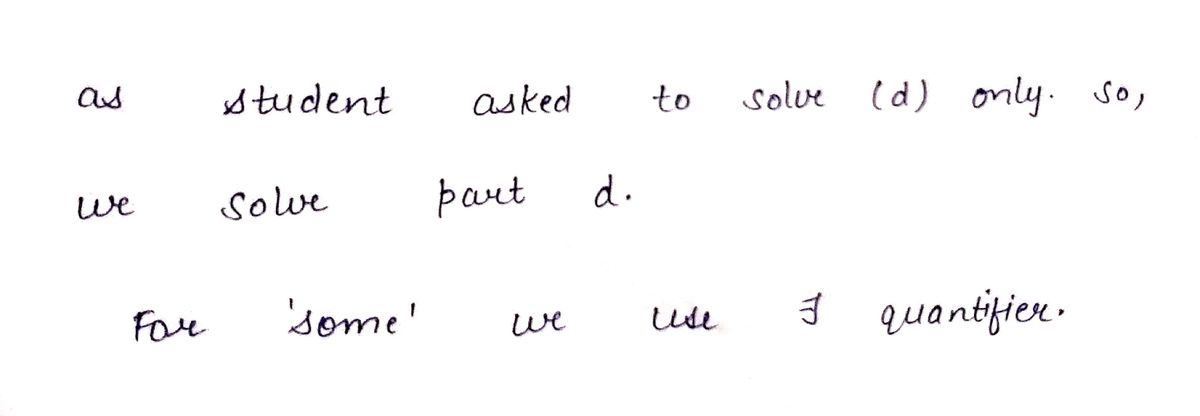 as student asked to solve (d) only. so,
we solve part d.
For 'some' we use ∃ quantifier.